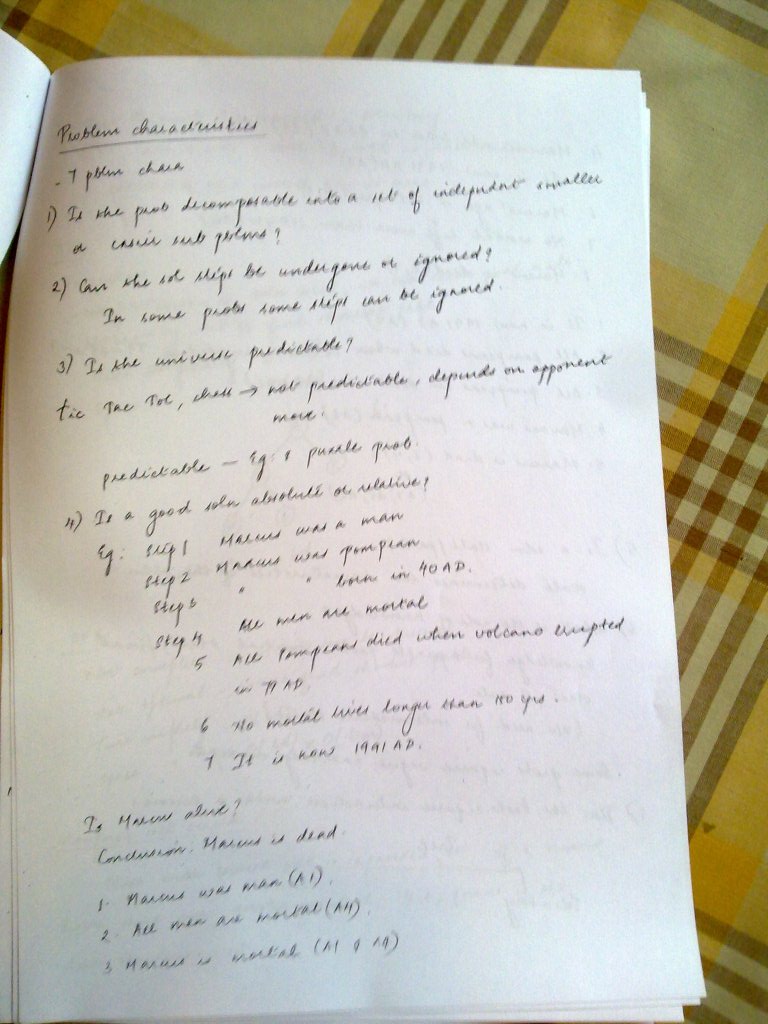 Problem characteristics
- 7 pblm chara
1) Is the prob decomposable into a set of independnt smaller
or easier sub pblms?
2) Can the sol steps be undergone or ignored?
In some probs some steps can be ignored.
3) Is the universe predictable?
tic Tac Toe, chess → not predictable, depends on opponent
move.
predictable – Eg: 8 puzzle prob.
4) Is a good soln absolute or relative?
Eg: Step 1 Marcus was a man
Step 2 Marcus was pompean
Step 3 " " born in 40 AD.
Step 4 All men are mortal
5 All Pompeans died when volcano erupted
in 79 AD.
6 No mortal lives longer than 150 yrs.
7 It is now 1991 AD.
Is Marcus alive?
Conclusion: Marcus is dead.
1. Marcus was man (A1).
2. All men are mortal (A4).
3 Marcus is mortal (A1 & A4)